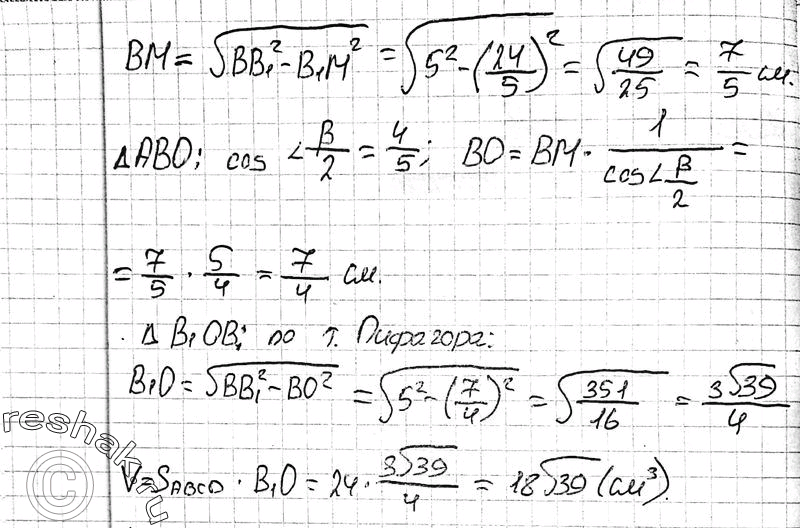 BM = √(BB₁² - B₁M²) = √(5² - (24/5)²) = √(49/25) = 7/5 см.
ΔABO; cos ∠β/2 = 4/5; BO = BM · 1/(cos∠β/2) =
= 7/5 · 5/4 = 7/4 см.
Δ B₁OB; по т. Пифагора:
B₁O = √(BB₁² - BO²) = √(5² - (7/4)²) = √(351/16) = 3√39/4
V = S_ABCD · B₁O = 24 · 3√39/4 = 18√39 (см³).
reshak.ru
©